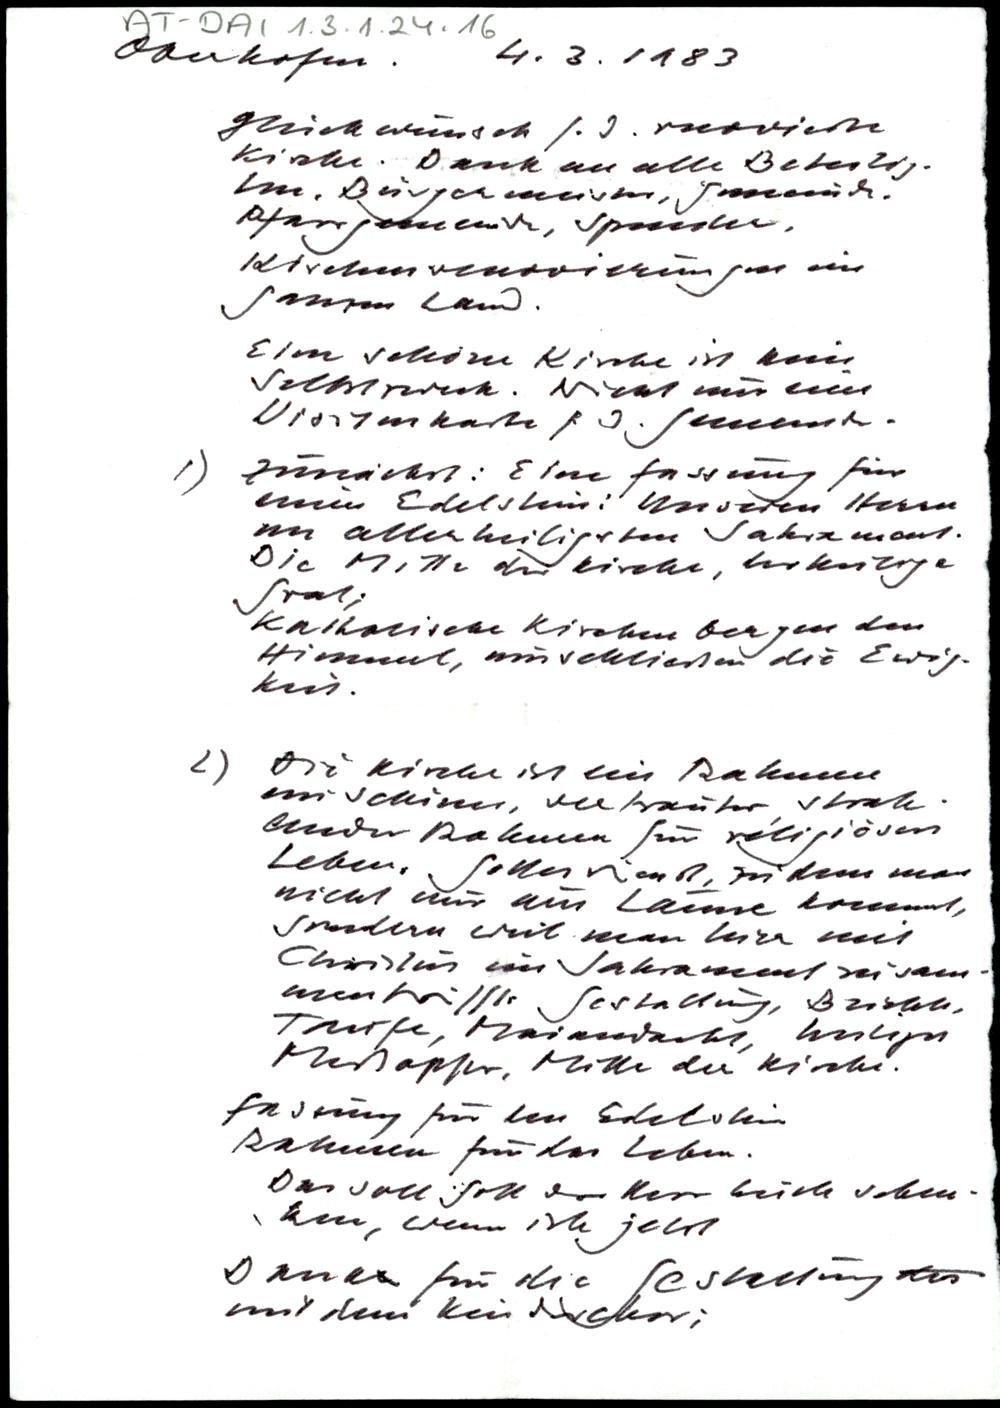 AT-DAI 1.3.1.24.16
Oberhofen. 4.3.1983
Glückwunsch f. d. renovierte
Kirche. Dank an alle Beteilig-
ten. Bürgermeister, Gemeinde.
Pfarrgemeinde, Spender.
Kirchenrenovierungen im
ganzen Land.
Eine schöne Kirche ist kein
Selbstzweck. Nicht nur eine
Visitenkarte f. d. Gemeinde.
1) Zunächst: Eine Fassung für
einen Edelstein: Unseren Herrn
im allerheiligsten Sakrament.
Die Mitte der Kirche, der heilige
Gral;
Katholische Kirchen bergen den
Himmel, umschließen die Ewig-
keit.
2) Die Kirche ist ein Rahmen
ein schöner, vertrauter, strah-
lender Rahmen für religiöses
Leben. Gottesdienst, zu dem man
nicht nur aus Laune kommt,
sondern weil man hier mit
Christus im Sakrament zusam-
mentrifft. Gestaltung, Beichte,
Taufe, Maiandacht, heiliges
Meßopfer, Mitte der Kirche.
Fassung für den Edelstein
Rahmen für das Leben.
Das soll Gott der Herr Euch schen-
ken, wenn ich jetzt
Danke für die Gestaltung des
mit dem Kinderchor;